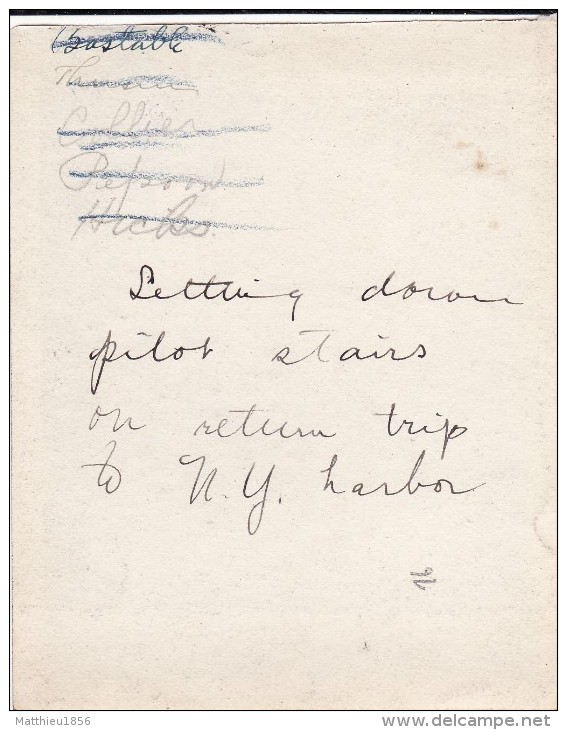 Bastable
Collier
Hicks.
Letting down
pilot stairs
on return trip
to N.Y. harbor
76
Matthieu1856
delcampe.net